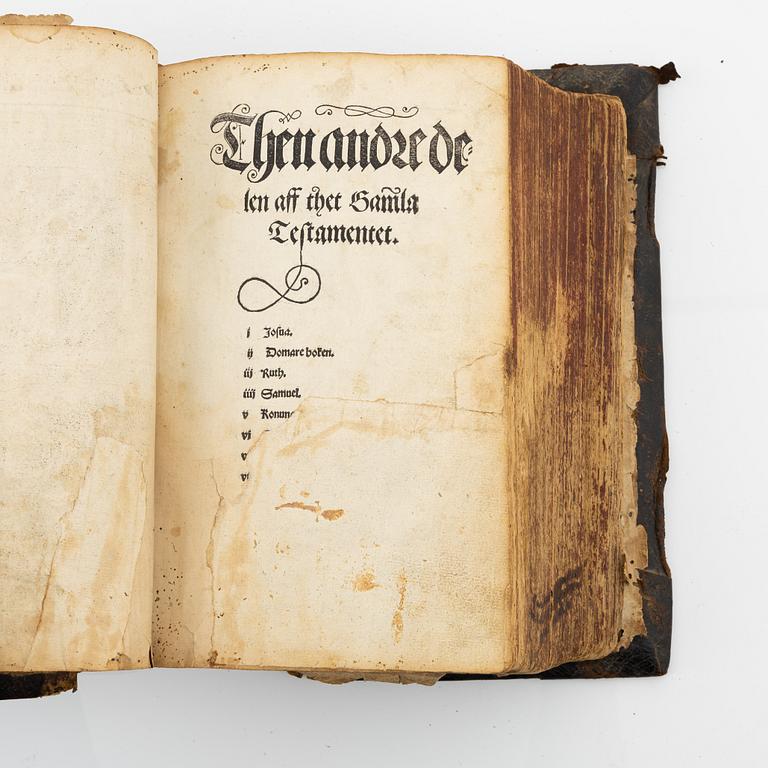 Then andre de⸗
len aff thet Gam̃la
Testamentet.
j Josua.
ij Domare boken.
iij Ruth.
iiij Samuel.
v
vj